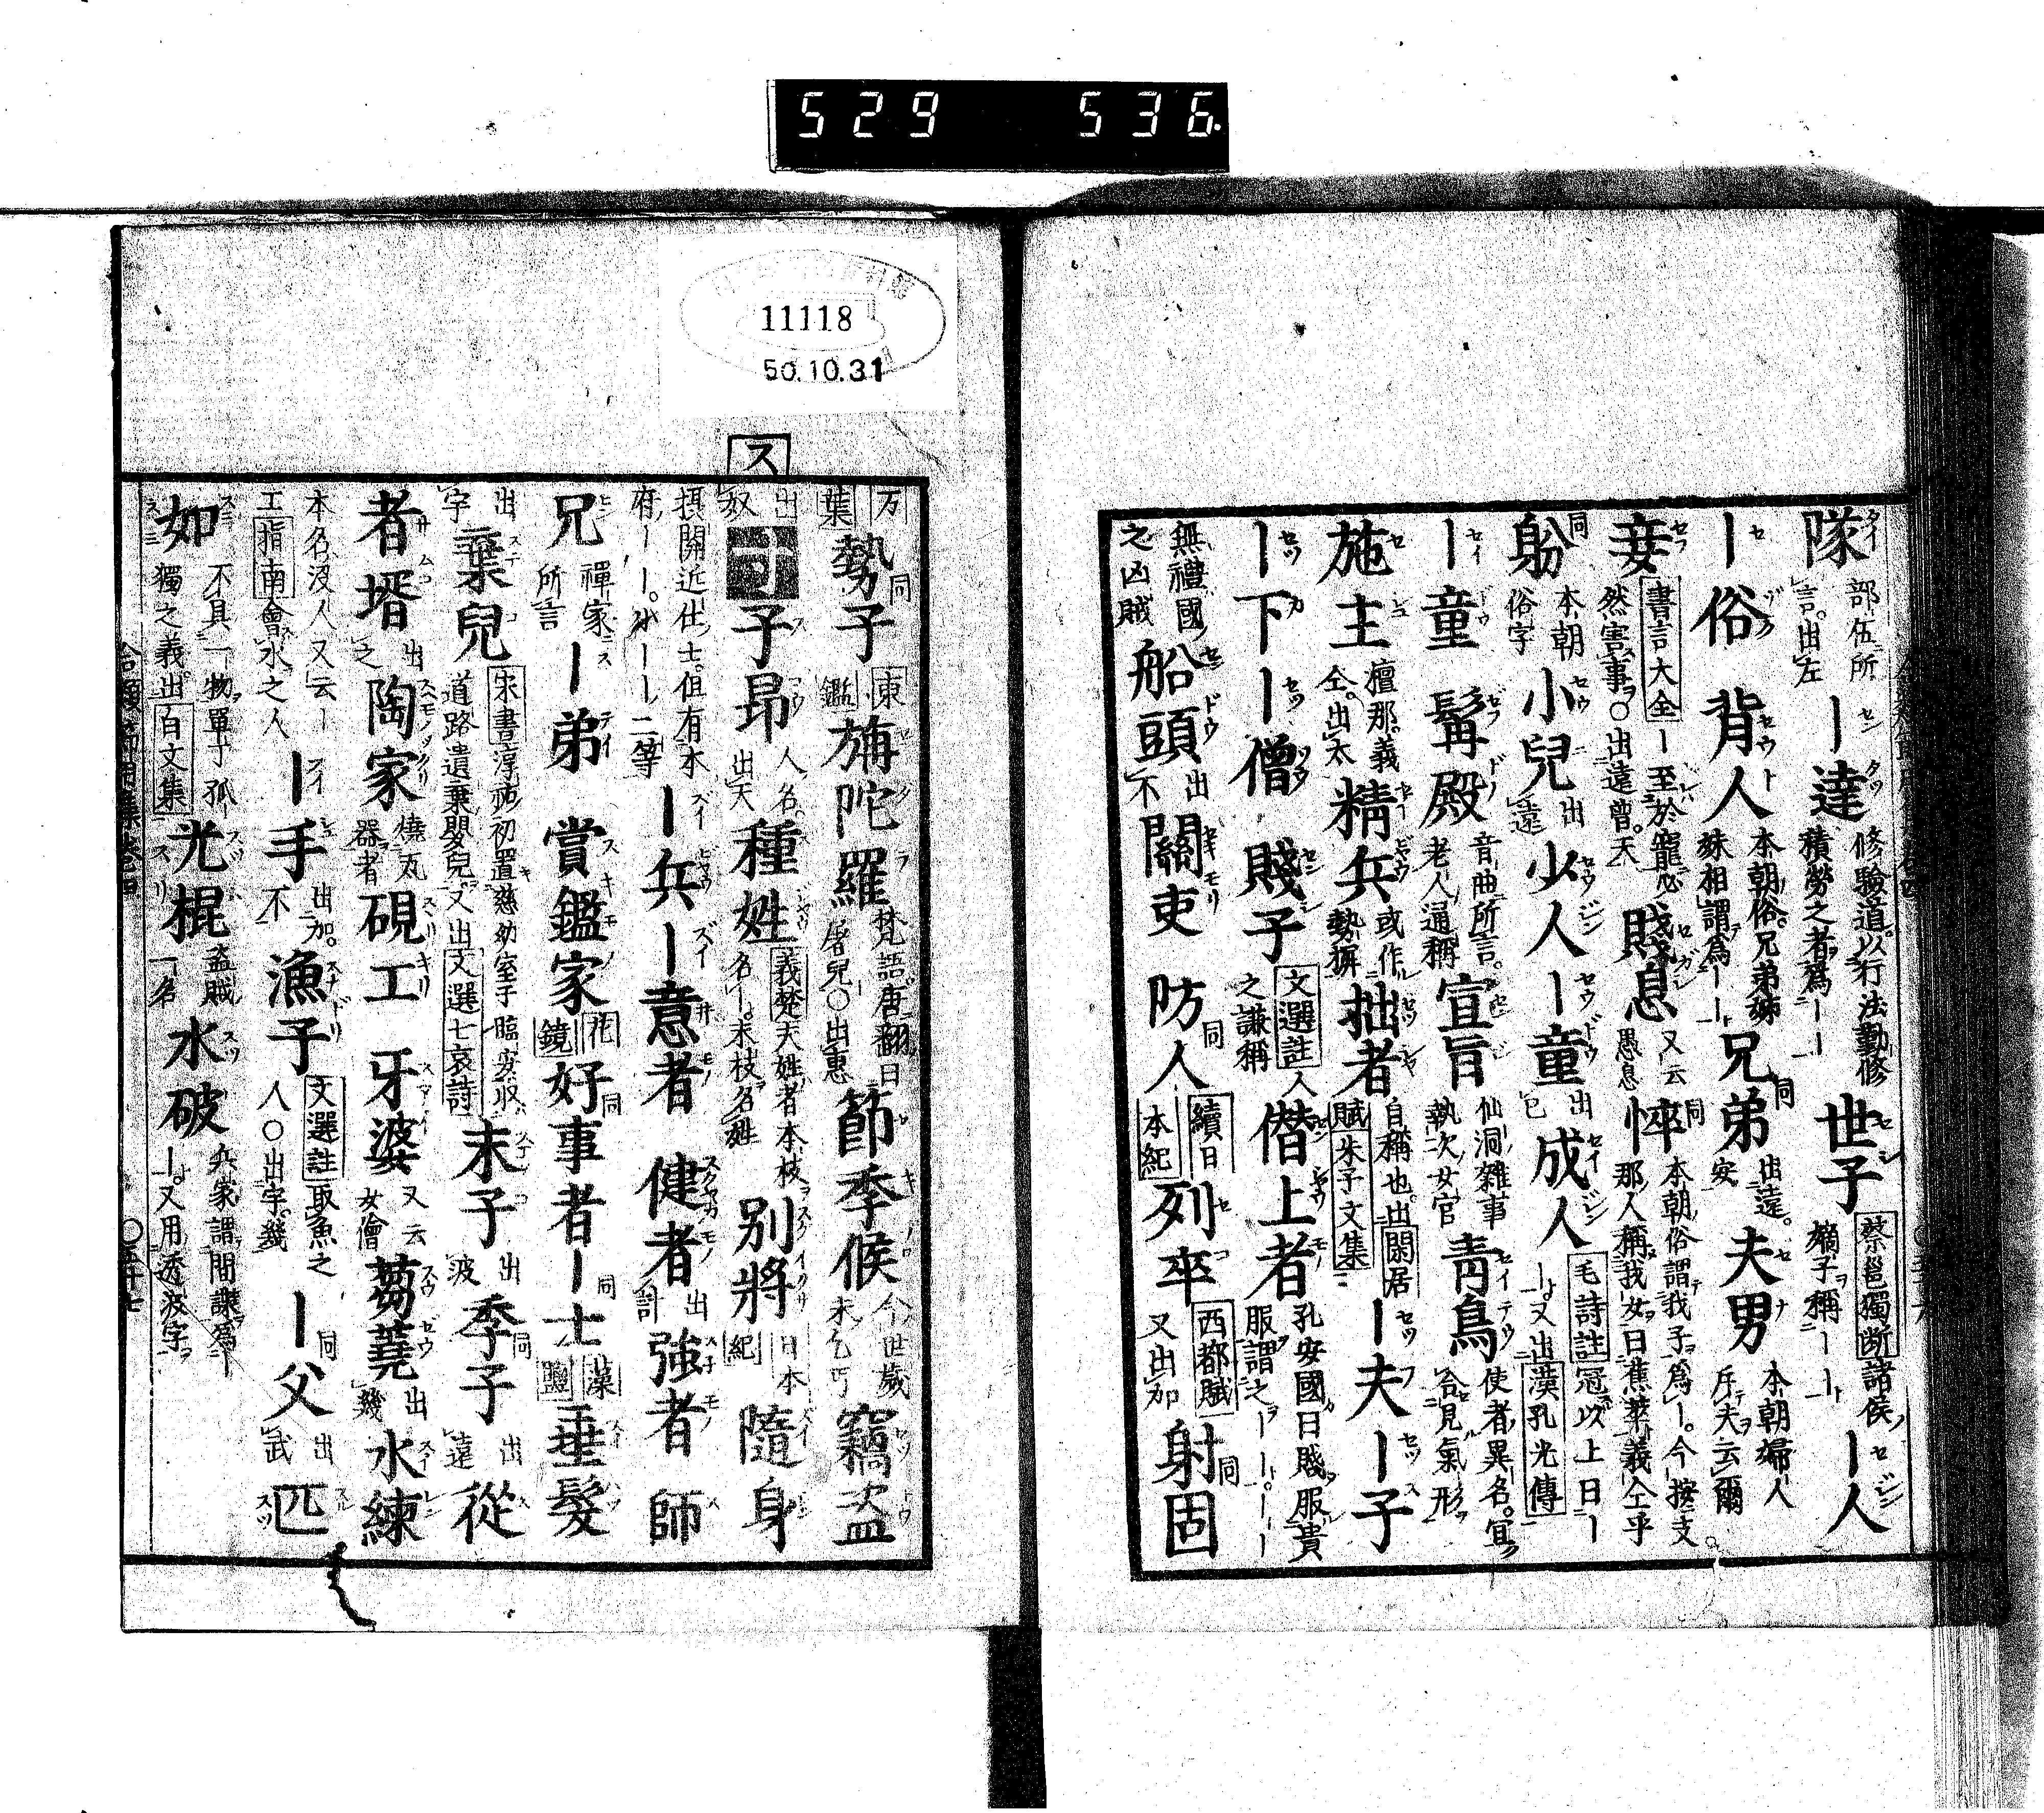 529 536.
11118
50.10.31
隊 部伍所言。出左 ー達 修驗道。以行法勤修積勞之者爲ーー 世子 蔡邕獨断 諸侯嫡子稱ーー ー人
ー俗 背人 本朝俗。兄弟姉妹相謂爲ーー 兄弟 同 出遠。安 夫男 本朝婦人斥夫云爾
妾 書言大全 ー至於寵必然害事○出遠曾。天 賤息 又云愚息 悴 同 本朝俗謂我子爲ー。今按支那人稱我女曰蕉萃義仝乎
躮 同 本朝俗字 小兒 出遠 少人 ー童 出巳 成人 毛詩註 冠以上曰ーー又出 漢孔光傳
ー童 髯殿 音曲所言。老人通稱 宣旨 仙洞雜事執次女官 青鳥 使者異名。宜合見氣形
施主 檀那。義仝。出太 精兵 或作勢 拙者 自稱也。出 閑居賦朱子文集 ー夫 ー子
ー下 ー僧 賤子 文選註 人之謙稱 僭上者 孔安國曰賤服貴服謂之ーー
無禮國之凶賊 船頭 出不 關吏 防人 同 續日本紀 列卒 西都賦 又出加 射固 同
万葉 勢子 同 東鑑 旃陀羅 梵語唐翻曰屠兒○出惠 節季候 今世歲末乞丐 竊盗
ス
出奴 子昂 人名。出天 種姓 義楚 天姓者本枝名ー。末枝名姓 別將 日本紀 隨身
摂關近仕士。但有本府ーー。小ーー二等 ー兵 ー意者 健者 出計 強者 師
兄 禪家所言 ー弟 賞鑑家 花鏡 好事者 同 ー士 同 藻鹽 垂髮
出字 棄兒 宋書 淳祐初置慈幼室于臨安收道路遺棄嬰兒又出 文選七哀詩 末子 出波 季子 同 出遠 從
者 壻 出之 陶家 燒瓦器者 硯工 牙婆 又云女儈 蒭蕘 出幾 水練
本名没人又云ー工 指南 會水之人 ー手 出加。不 漁子 文選註 取魚之人○出字。幾 ー父 同 出武 匹
如 不具一物單孑孤獨之義。出 白文集 光棍 盗賊一名 水破 兵家謂間諜爲ーー。又用透波字